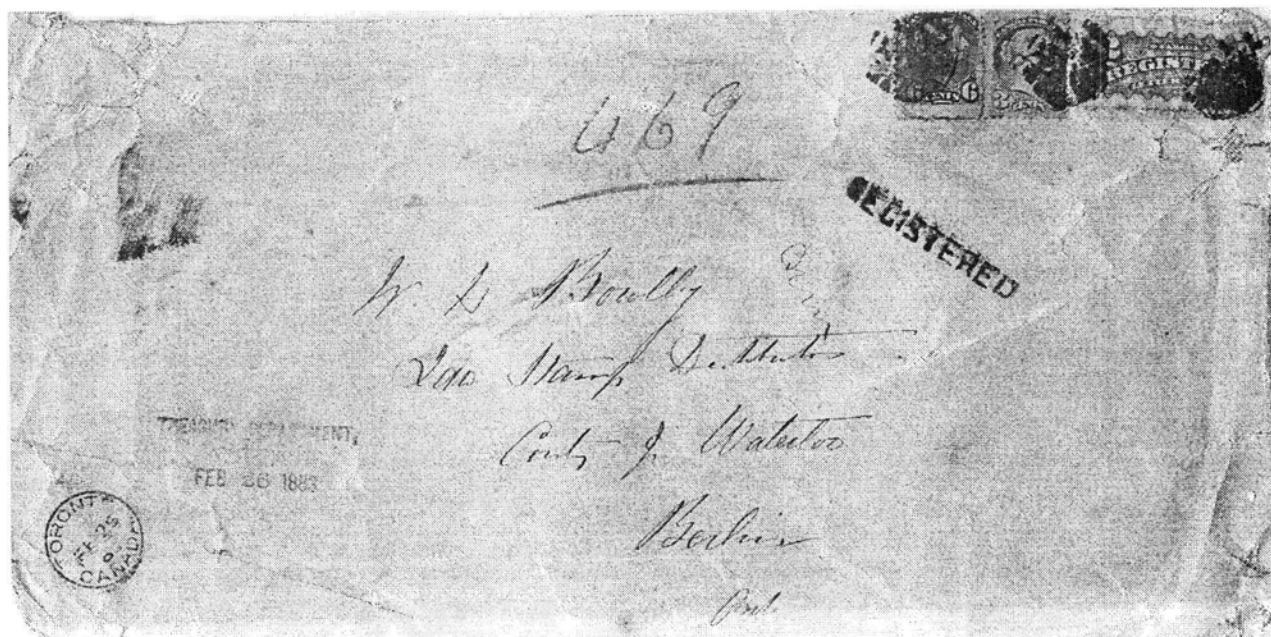 6 CENTS 6
3 CENTS
2 REGISTE
469
REGISTERED
W. D. Bowlby
Law Stamp Distributor
County of Waterloo
Berlin
Ont.
TREASURY DEPARTMENT,
FEB 26 1883
TORONTO
CANADA